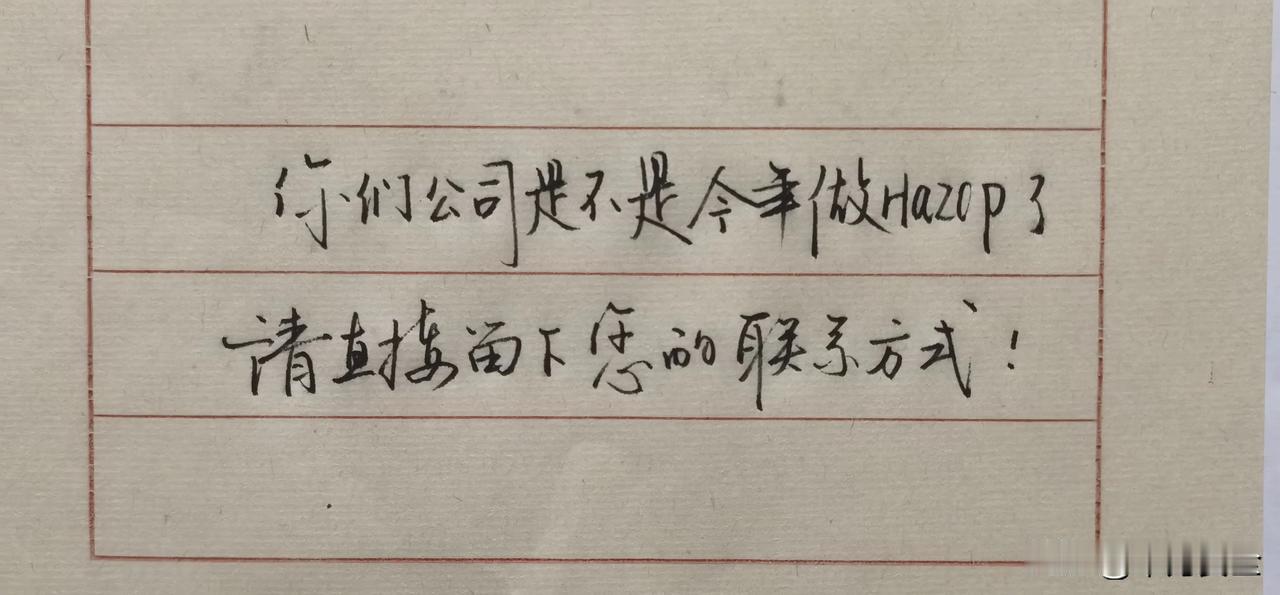 你们公司是不是今年做Hazop了
请直接留下您的联系方式！